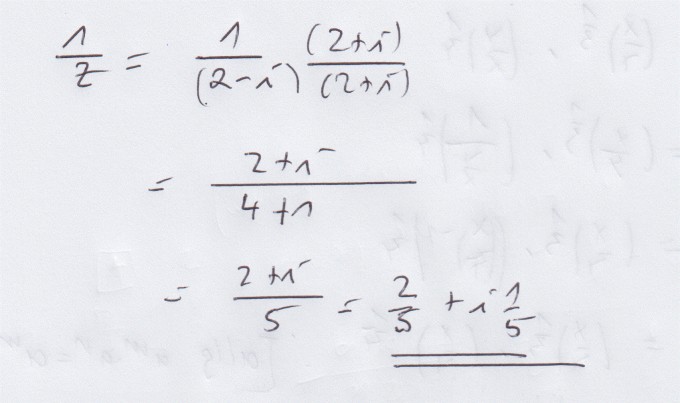 1/z = 1/(2-i) (2+i)/(2+i)
= (2+i)/(4+1)
= (2+i)/5 = 2/5 + i 1/5